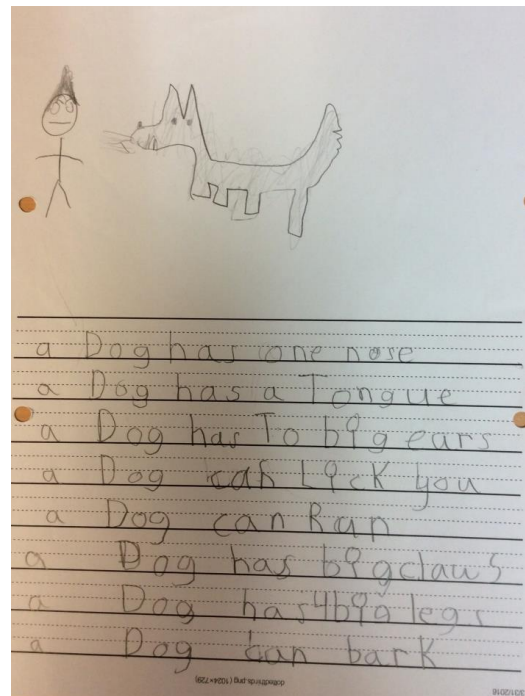 a Dog has one nose
a Dog has a Tongue
a Dog has To big ears
a Dog can Lick you
a Dog can Run
a Dog has big claws
a Dog has 4 big legs
a Dog can bark
dottedthirds.png (1024×729)